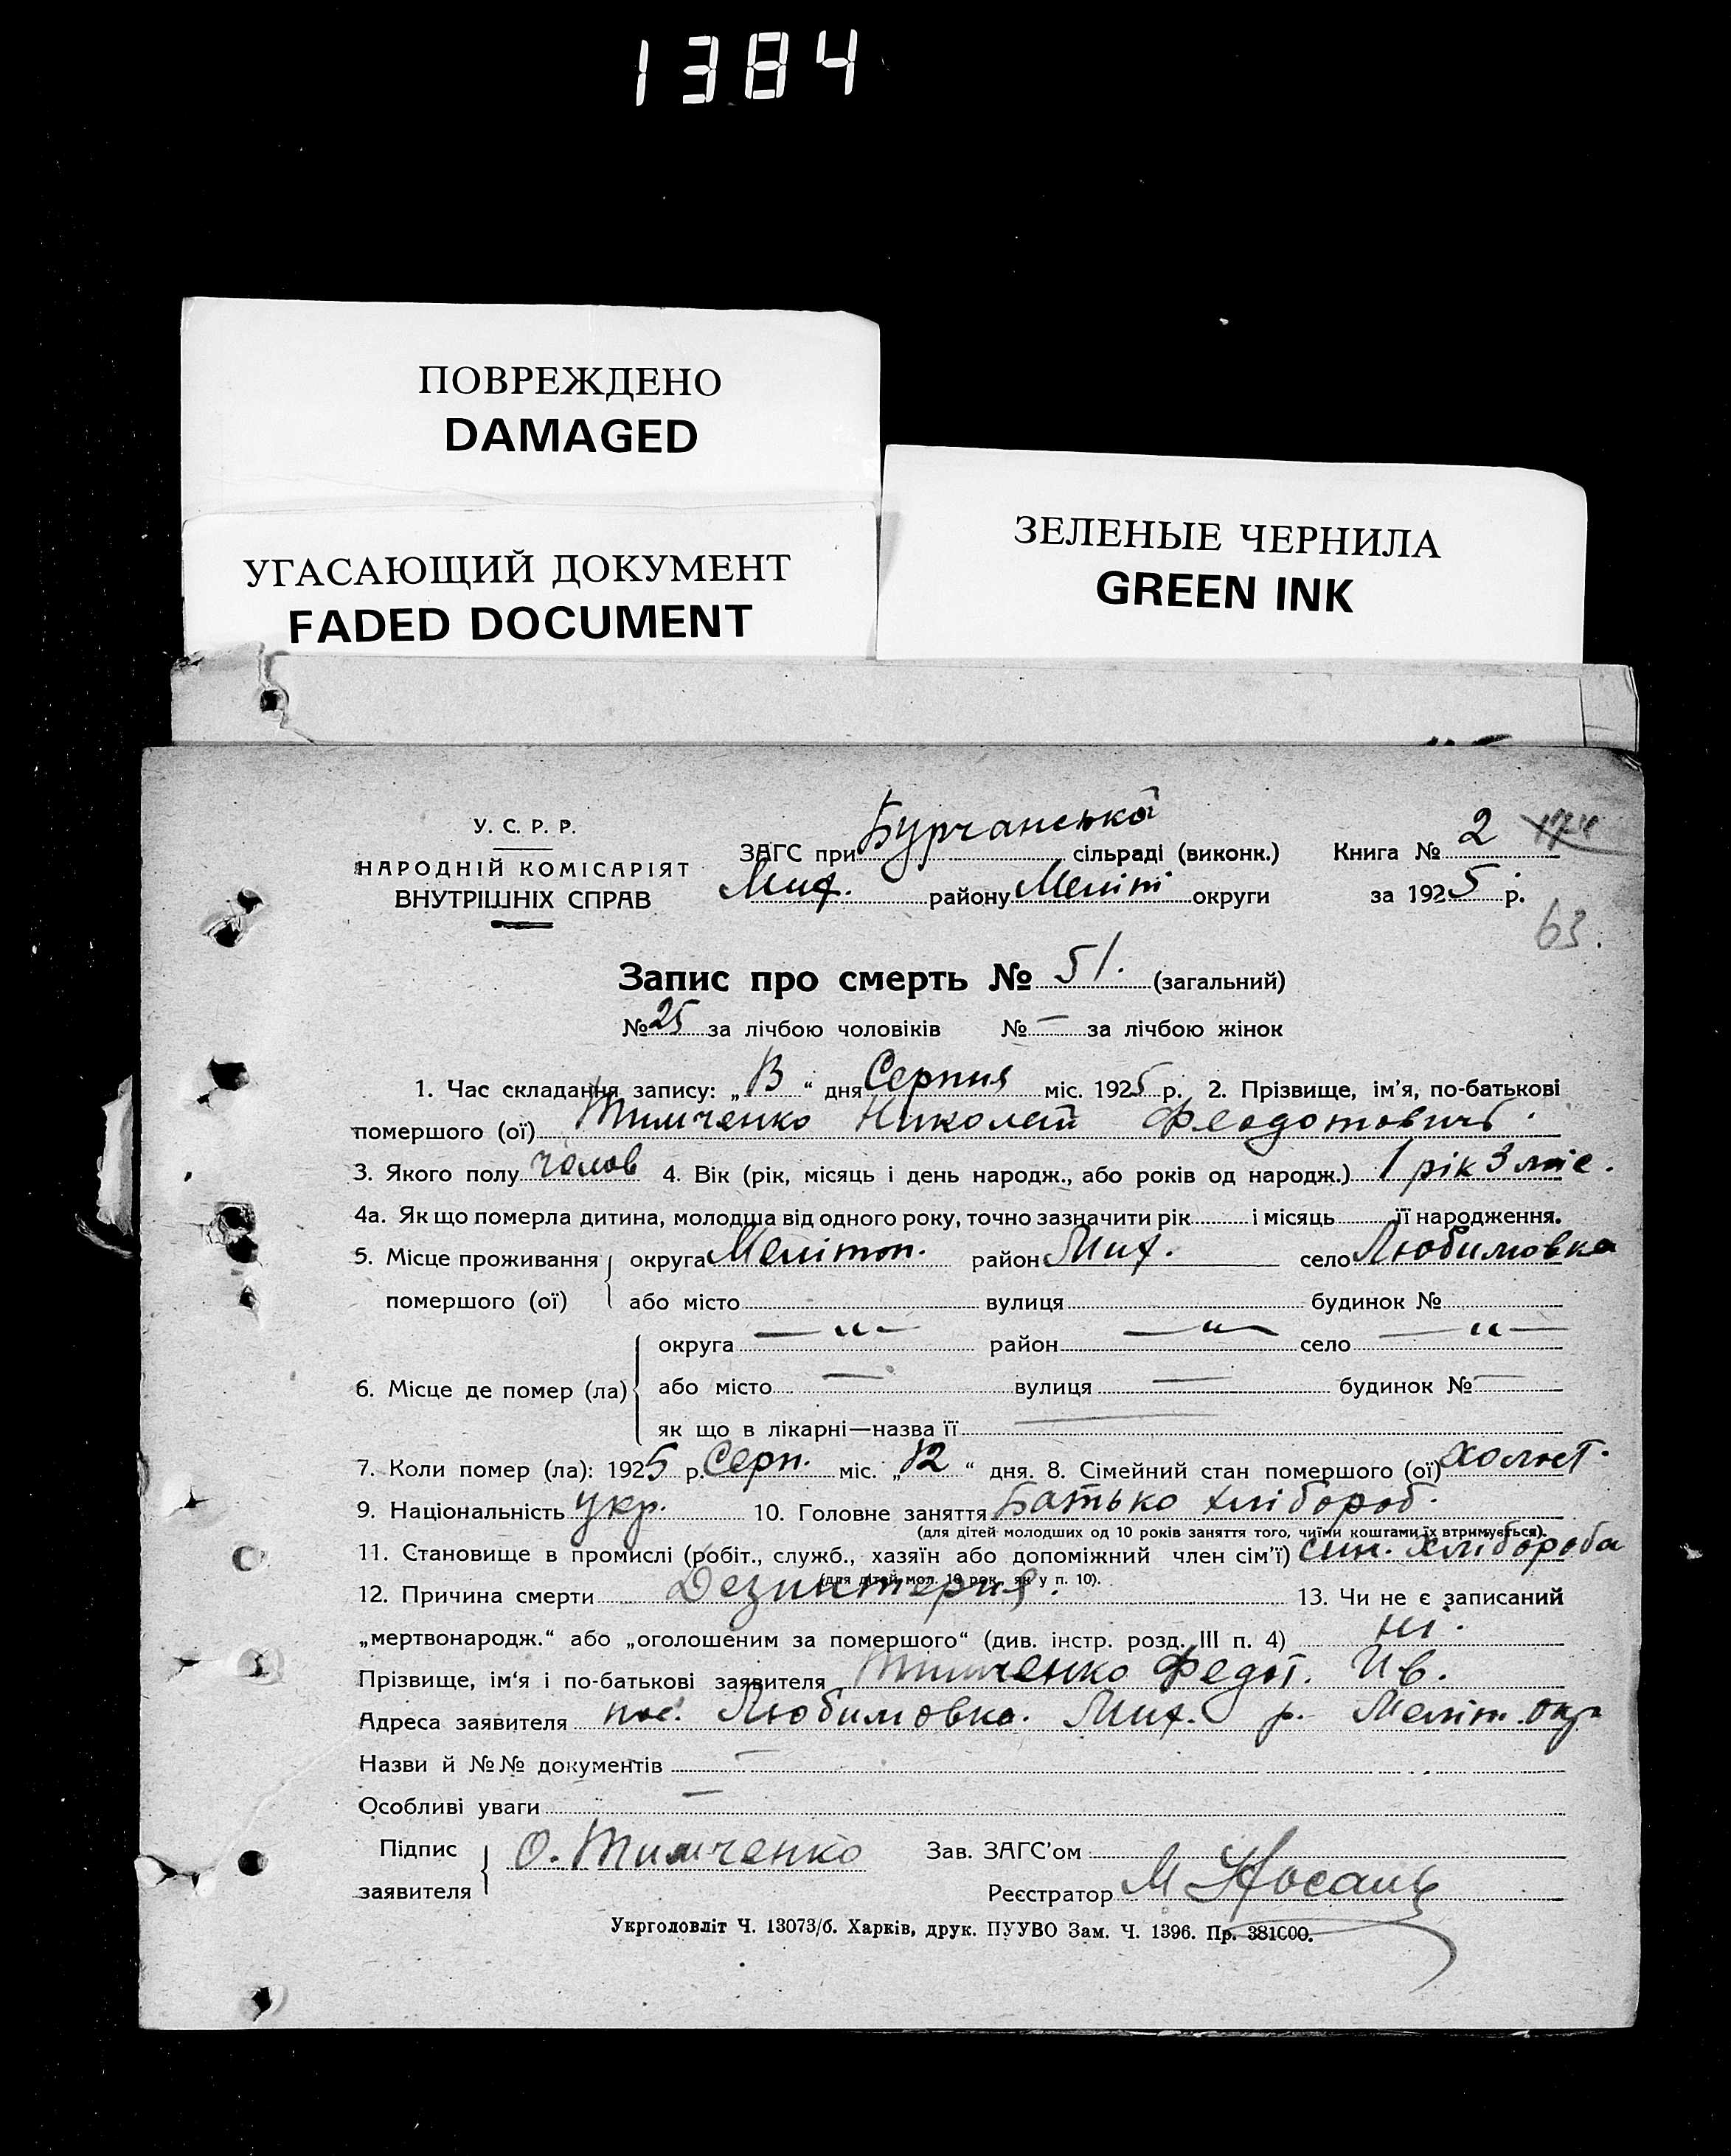 1384
ПОВРЕЖДЕНО
DAMAGED
УГАСАЮЩИЙ ДОКУМЕНТ
FADED DOCUMENT
ЗЕЛЕНЫЕ ЧЕРНИЛА
GREEN INK
У. С. Р. Р.
НАРОДНІЙ КОМІСАРІЯТ
ВНУТРІШНІХ СПРАВ
ЗАГС при Бурчанській сільраді (виконк.) Книга № 2
Мих. району Меліт округи за 1925 р.
63.
Запис про смерть № 51. (загальний)
№ 25 за лічбою чоловіків № — за лічбою жінок
1. Час складання запису: „ “ дня Серпня міс. 1925 р. 2. Прізвище, ім’я, по-батькові
помершого (ої) Тимченко Николай Феодотовичъ.
3. Якого полу чолов 4. Вік (рік, місяць і день народж., або років од народж.) 1 рік 3 міс.
4а. Як що померла дитина, молодша від одного року, точно зазначити рік і місяць її народження.
5. Місце проживання округа Мелітоп. район Мих. село Любимовка
помершого (ої) або місто вулиця будинок №
округа —„— район —„— село —„—
6. Місце де помер (ла) або місто — вулиця — будинок № —
як що в лікарні—назва її —
7. Коли помер (ла): 1925 р. Серп. міс. „12“ дня. 8. Сімейний стан помершого (ої) холост.
9. Національність укр. 10. Головне заняття Батько хлібороб.
(для дітей молодших од 10 років заняття того, чиїми коштами їх втримується).
11. Становище в промислі (робіт., служб., хазяїн або допоміжний член сім’ї) син. хлібороба
(для дітей мол. 10 рок. як у п. 10).
12. Причина смерти Дезинтерия. 13. Чи не є записаний
„мертвонародж.“ або „оголошеним за помершого“ (див. інстр. розд. III п. 4) ні.
Прізвище, ім‘я і по-батькові заявителя Тимченко Федот. Ив.
Адреса заявителя пос. Любимовка. Мих. р. Меліт. окр
Назви й №№ документів —
Особливі уваги —
Підпис
заявителя О. Тимченко Зав. ЗАГС’ом
Реєстратор М Носань
Укрголовліт Ч. 13073/б. Харків, друк. ПУУВО Зам. Ч. 1396. Пр. 381000.